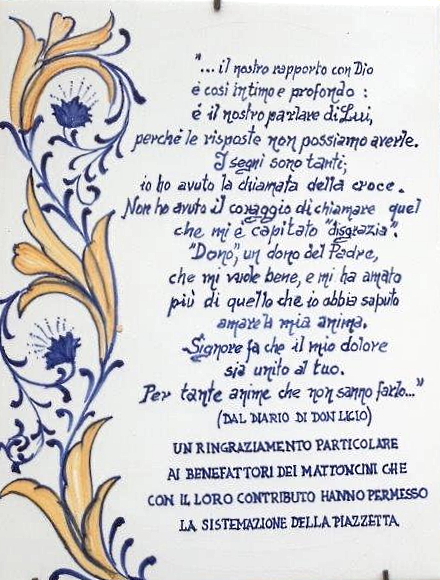 "... il nostro rapporto con Dio
è così intimo e profondo :
é il nostro parlare di Lui,
perché le risposte non possiamo averle.
I segni sono tanti;
io ho avuto la chiamata della croce.
Non ho avuto il coraggio di chiamare quel
che mi è capitato "disgrazia".
"Dono", un dono del Padre,
che mi vuole bene, e mi ha amato
più di quello che io abbia saputo
amare la mia anima.
Signore fa che il mio dolore
sia unito al tuo.
Per tante anime che non sanno farlo..."
(DAL DIARIO DI DON LICIO)
UN RINGRAZIAMENTO PARTICOLARE
AI BENEFATTORI DEI MATTONCINI CHE
CON IL LORO CONTRIBUTO HANNO PERMESSO
LA SISTEMAZIONE DELLA PIAZZETTA